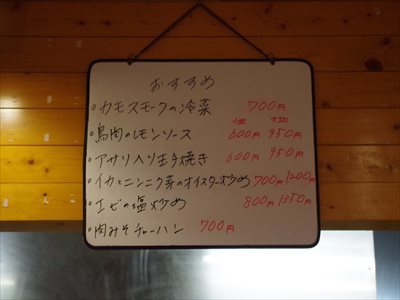 おすすめ
・カモスモークの冷菜 700円
小皿 大皿
・鳥肉のレモンソース 600円 950円
・アサリ入り玉子焼き 600円 950円
・イカとニンニク芽のオイスター炒め 700円 1200円
・エビの塩炒め 800円 1350円
・肉みそチャーハン 700円